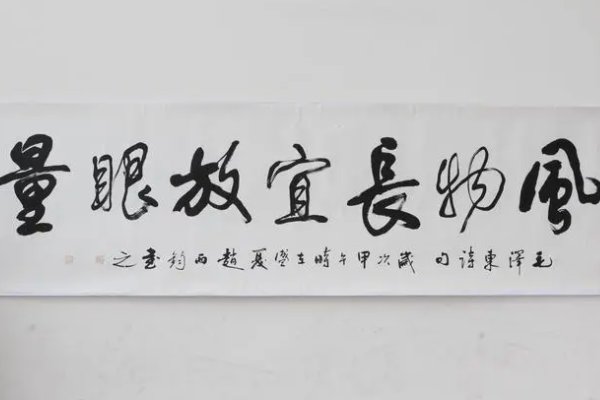 風物長宜放眼量
毛澤東詩句 歲次甲午時在盛夏趙西鈞書之